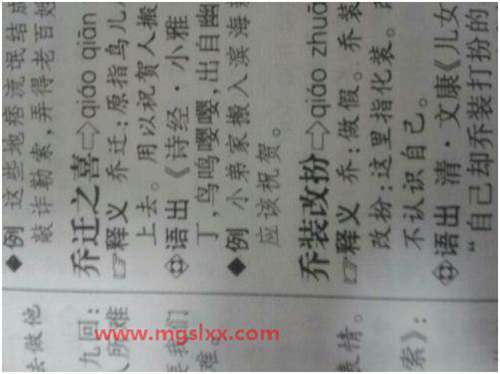 ◆例 这些地痞流氓结成
敲诈勒索,弄得老百姓
乔迁之喜⇨qiáo qiān
☞释义 乔迁:原指鸟儿
上去。用以祝贺人搬
语出 《诗经·小雅
丁,鸟鸣嘤嘤,出自幽
◆例 小弟家搬入滨海
应该祝贺。
乔装改扮⇨qiáo zhuā
☞释义 乔:做假。乔装
改扮:这里指化装。
不认识自己。
语出 清·文康《儿女
“自己却乔装打扮的
去做他
九回:
人所难
我们
难。
表情。
索》:
www.mgslxx.com